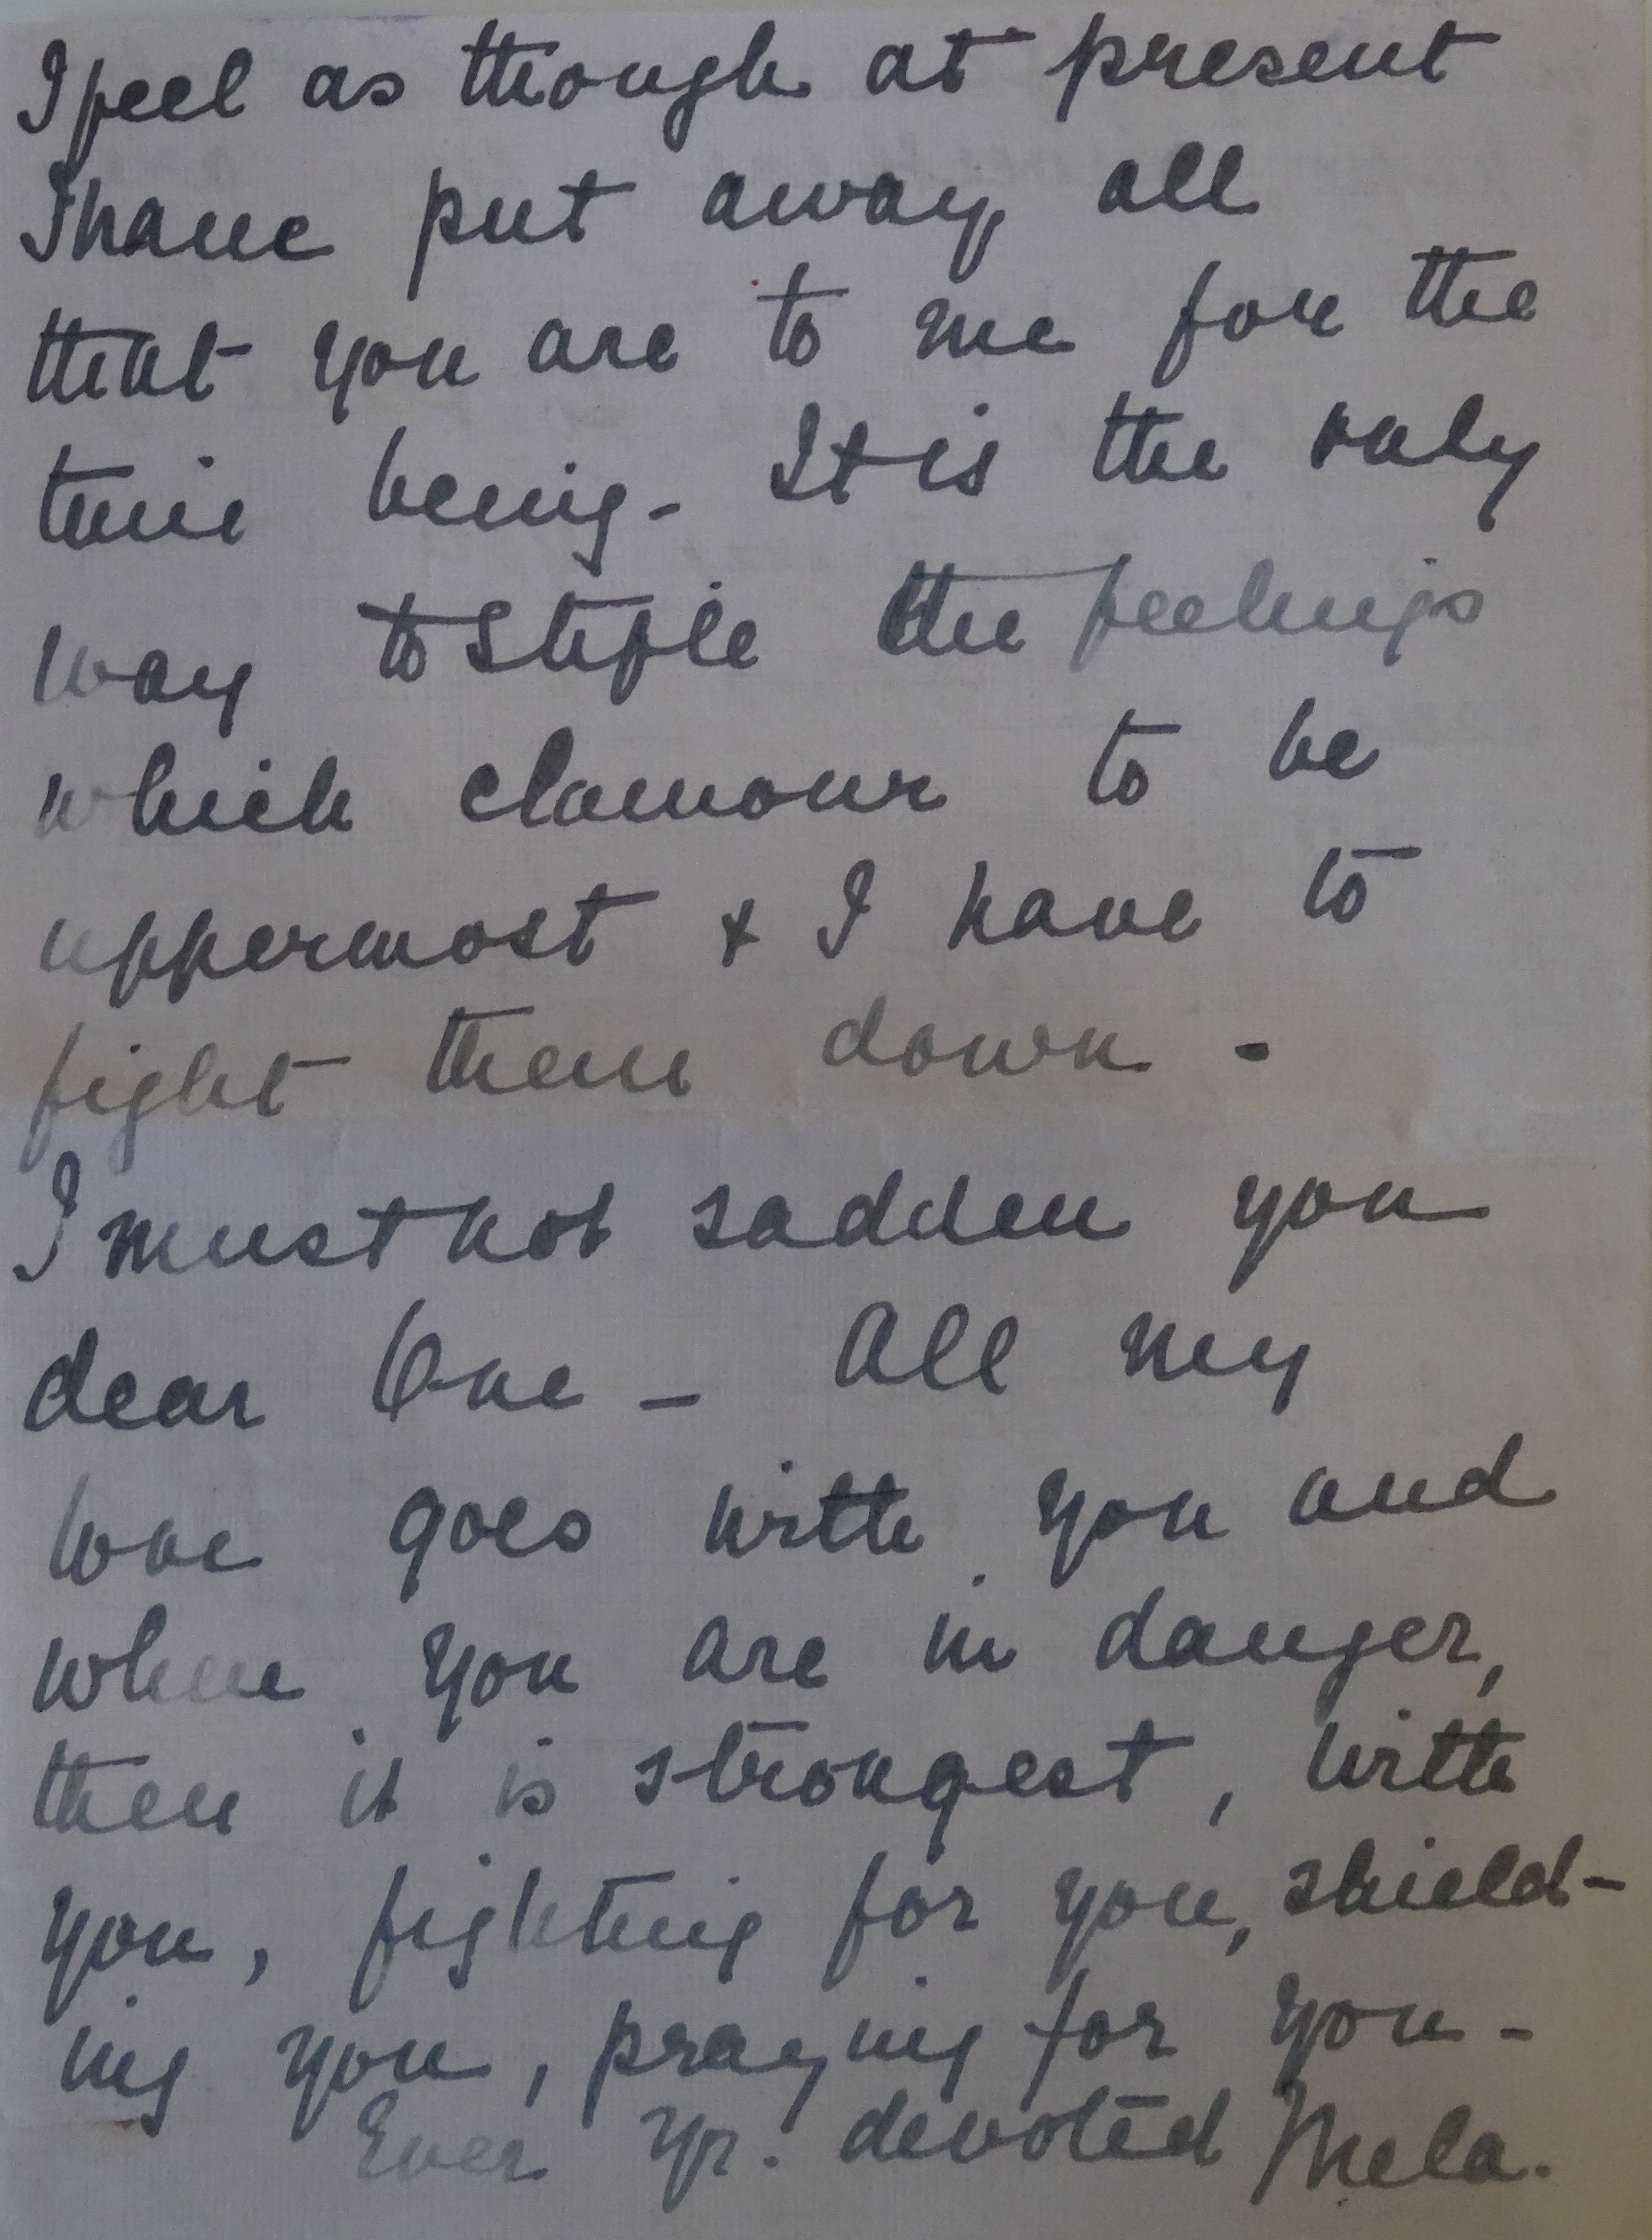 I feel as though at present
I have put away all
that you are to me for the
time being - It is the only
way to stifle the feelings
which clamour to be
uppermost & I have to
fight them down -
I must not sadden you
dear One - All my
love goes with you and
when you are in danger,
then it is strongest, with
you, fighting for you, shield-
ing you, praying for you -
Ever yr. devoted Mela.